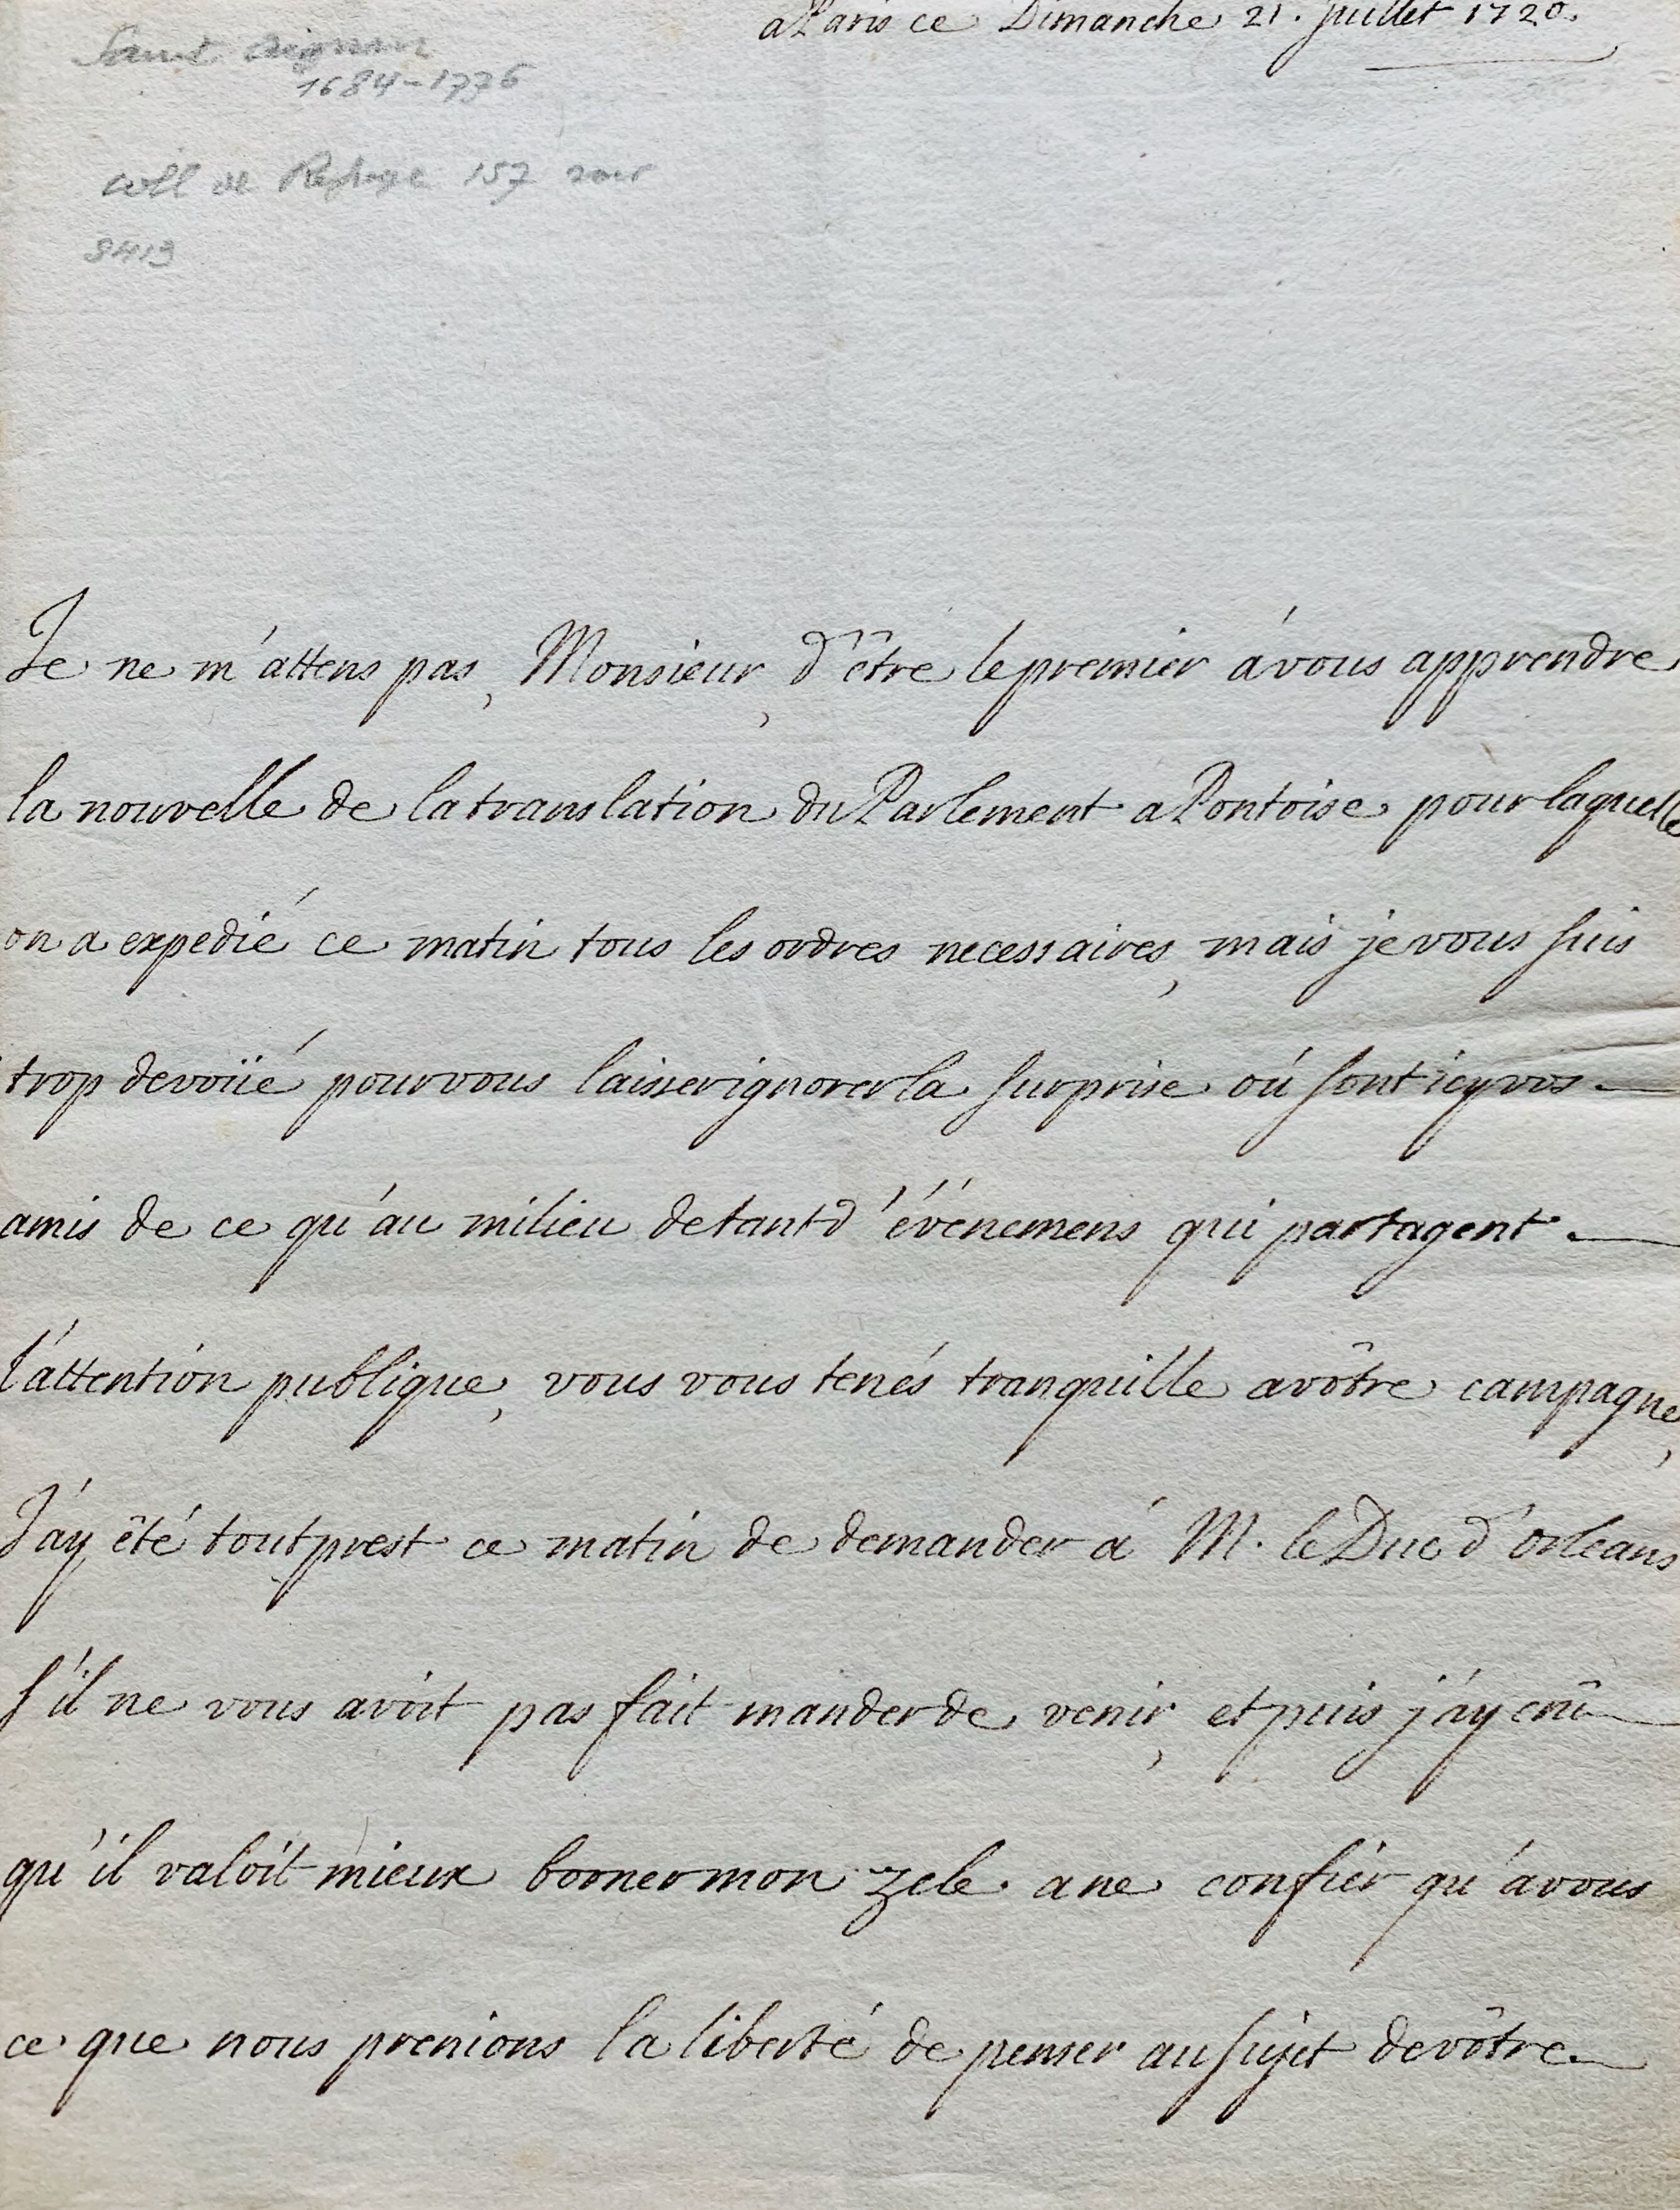 a Paris ce Dimanche 21. juillet 1720.
Saint Aignan
1684-1776
coll de Refuge 157
8419
Je ne m'attens pas, Monsieur, d'être le premier á vous apprendre
la nouvelle de la translation du Parlement a Pontoise pour laquelle
on a expedié ce matin tous les ordres necessaires, mais je vous suis
trop devoüé pour vous laisser ignorer la surprise oú sont icy vos
amis de ce qu'au milieu de tant d'événemens qui partagent
l'attention publique, vous vous tenés tranquille a vôtre campagne,
J'ay êté tout prest ce matin de demander á M. le Duc d'orleans
s'il ne vous avoit pas fait mander de venir, et puis j'ay crû
qu'il valoit mieux borner mon zele a ne confier qu'a vous
ce que nous prenions la liberté de penser au sujet de vôtre